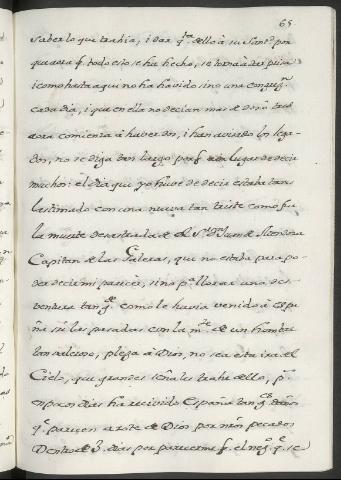 65
saber lo que trahia, i dar q.ta dello à su Sant.d por
que aora q. todo esto se ha hecho, se tornà à dar prisa
i como hasta aqui no ha havido sino una congreg.n
cada dia, i que en ella no decian mas de dos ò tres
aora comienza à haver dos, i han avisado los lega-
dos, no se diga tan largo por q. aya lugar de decir
muchos: el dia que yo huve de decir estaba tan
lastimado con una nueva tan triste como fu
la muerte desastrada de el S.r D.n Juan de Mendoza
Capitan de las Galeras, que no estaba para po-
der decir mi parecer, sino p.a llorar una des-
ventura tan g.de como le havia venido à Espa-
ña sin las pasadas con la m.te de un hombre
tan valeroso, plega à Dios, no sea esta ira del
Cielo, que grandes señales trahe dello, p.s
en pocos dias ha recivido España tan g.des daños
q.e parecen azote de Dios por nros pecados
Dentro de 3. dias por parecerme q. el neg.o q.e se